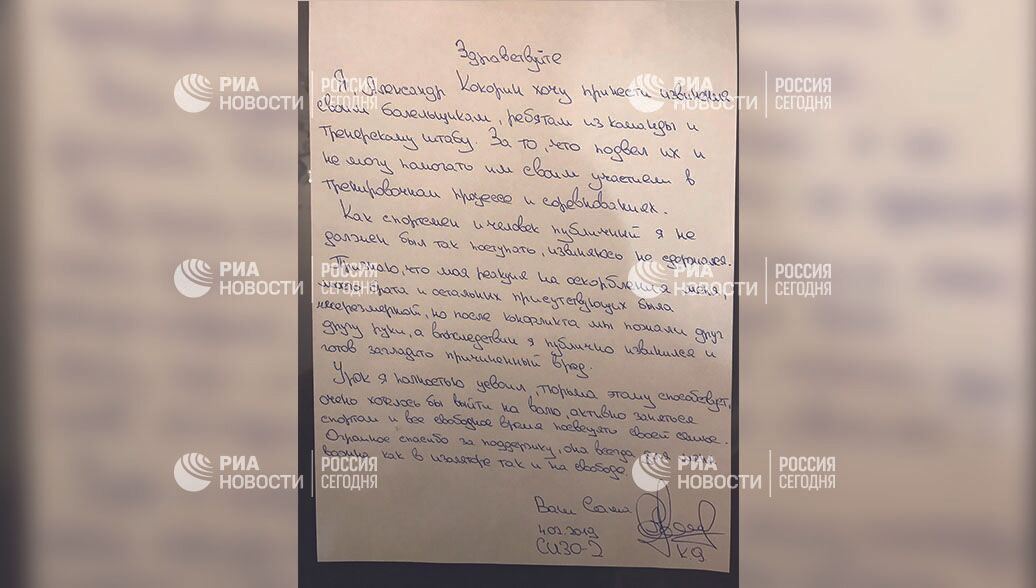 Здравствуйте
Я, Александр Кокорин хочу принести извинения
своим болельщикам, ребятам из команды и
тренерскому штабу. За то, что подвел их и
не могу помогать им своим участием в
тренировочном процессе и соревнованиях.
Как спортсмен и человек публичный я не
должен был так поступать, извиняюсь не сдержался.
Признаю, что моя реакция на оскорбления меня,
моего брата и остальных присутствующих была
чрезмерной, но после конфликта мы пожали друг
другу руки, а впоследствии я публично извинился и
готов загладить причиненный вред.
Урок я полностью усвоил, тюрьма этому способствует,
очень хотелось бы выйти на волю, активно заняться
спортом и все свободное время посвещять своей семье.
Огромное спасибо за поддержку, она всегда для меня
важна как в изоляторе так и на свободе.
Ваш Саня
4.02.2019
СИЗО-2
К.Я.
РИА НОВОСТИ РОССИЯ СЕГОДНЯ
РИА НОВОСТИ РОССИЯ СЕГОДНЯ
РИА НОВОСТИ РОССИЯ СЕГОДНЯ
РИА НОВОСТИ РОССИЯ СЕГОДНЯ
РИА НОВОСТИ РОССИЯ СЕГОДНЯ
РИА НОВОСТИ РОССИЯ СЕГОДНЯ